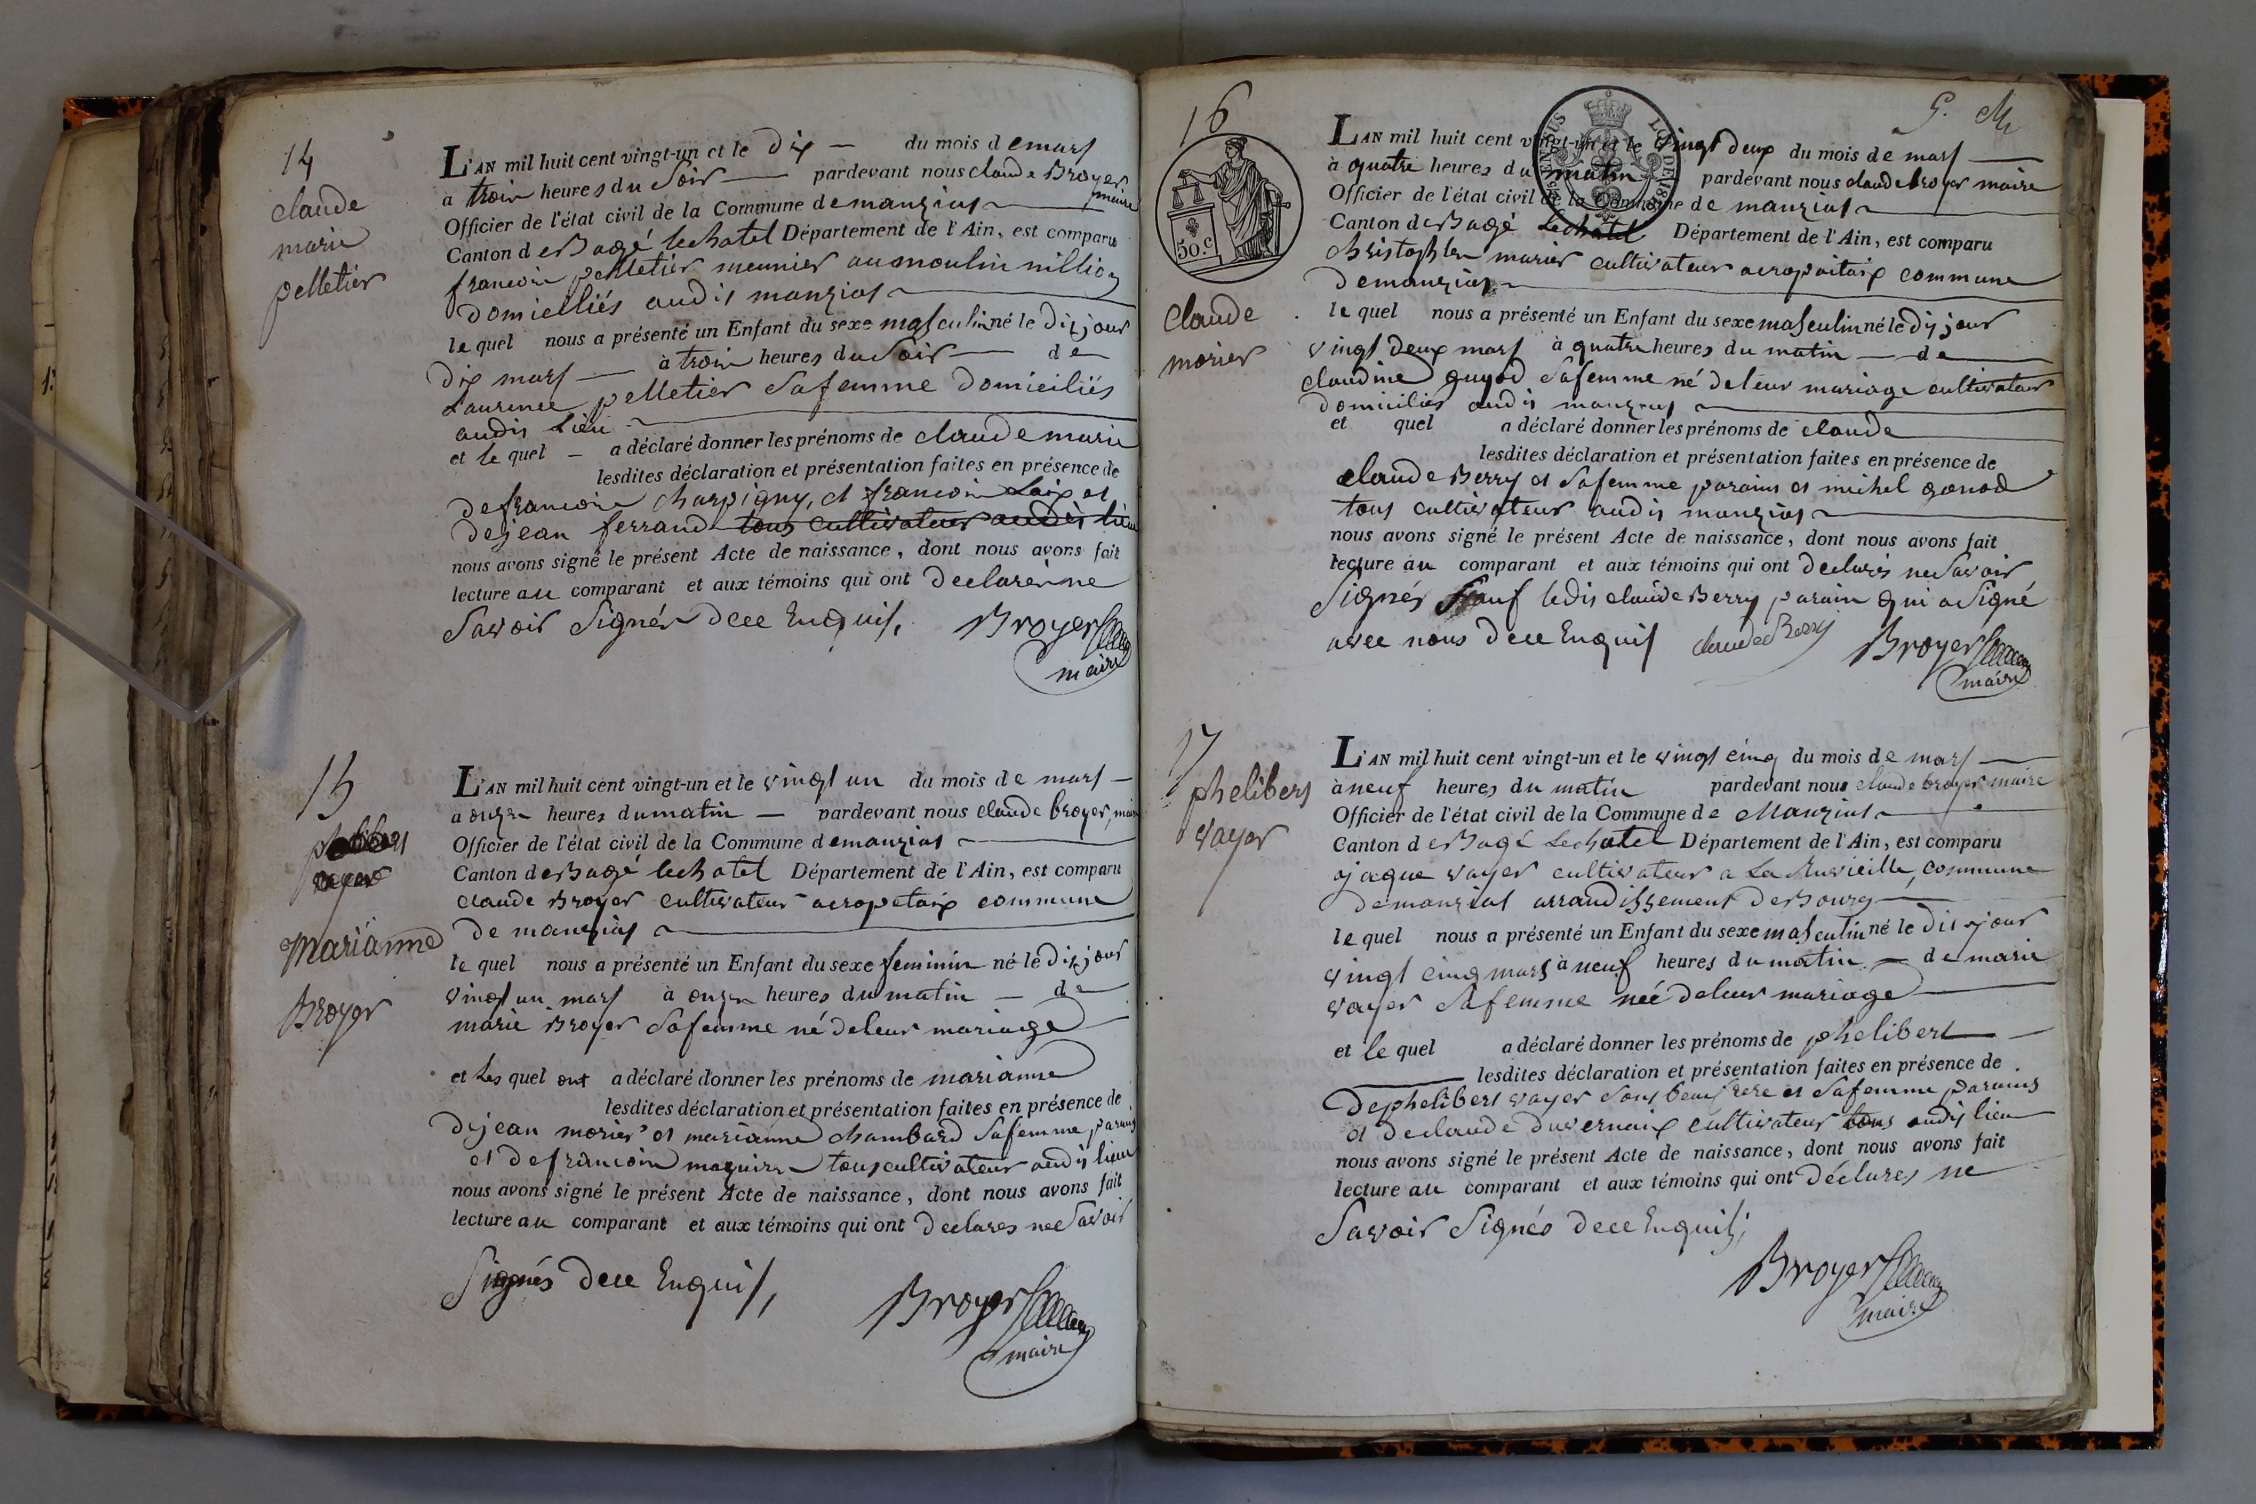 14
claude
marie
pelletier
L'AN mil huit cent vingt-un et le dix du mois de mars
à trois heures du soir pardevant nous claude Broyer maire
Officier de l'état civil de la Commune de manziat
Canton de Bagé lechatel Département de l'Ain, est comparu
francois pelletier meunier au moulin
domiciliés audit manziat
le quel nous a présenté un Enfant du sexe masculin né le dis jour
dix mars à trois heures du soir de
Laurence pelletier sa femme domiciliés
audit Lieu
et le quel a déclaré donner les prénoms de claude marie
lesdites déclaration et présentation faites en présence de
de francois charpigny, et francois Laix et
de jean ferrand tous cultivateur audit lieu
nous avons signé le présent Acte de naissance, dont nous avons fait
lecture au comparant et aux témoins qui ont declaré ne
savoir signés dece Enquis,
Broyer
maire
15
phelibert
vayer
marianne
Broyer
L'AN mil huit cent vingt-un et le vingt un du mois de mars
a onze heures du matin pardevant nous claude broyer, maire
Officier de l'état civil de la Commune de manziat
Canton de Bagé lechatel Département de l'Ain, est comparu
claude Broyer cultivateur acropetaix commune
de manziat
le quel nous a présenté un Enfant du sexe feminin né le dis jour
vingt un mars à onze heures du matin de
marie Broyer sa femme né de leur mariage
et Les quel ont a déclaré donner les prénoms de marianne
lesdites déclaration et présentation faites en présence de
de jean morier et marianne chambard sa femme parains
et de francois tous cultivateur audit lieu
nous avons signé le présent Acte de naissance, dont nous avons fait
lecture au comparant et aux témoins qui ont declarés nee savoir
signés dece Enquis,
Broyer
maire
16
50 c.
5.
claude
morier
L'AN mil huit cent vingt-un et le vingt deux du mois de mars
à quatre heures du matin pardevant nous claude broyer maire
Officier de l'état civil de la Commune de manziat
Canton de Bagé Lechatel Département de l'Ain, est comparu
christophe morier cultivateur acropaitaix commune
de manziat
le quel nous a présenté un Enfant du sexe masculin né le dis jour
vingt deux mars à quatre heures du matin de
claudine guyod sa femme né de leur mariage cultivateur
domiciliés audit manziat
et quel a déclaré donner les prénoms de claude
lesdites déclaration et présentation faites en présence de
claude Berry et sa femme parains et michel gonod
tous cultivateur audit manziat
nous avons signé le présent Acte de naissance, dont nous avons fait
lecture au comparant et aux témoins qui ont declarés ne savoir
signés sauf ledit claude Berry parain qui a signé
avec nous dece Enquis claude Berry Broyer
maire
17
phelibert
vayer
L'AN mil huit cent vingt-un et le vingt cinq du mois de mars
à neuf heures du matin pardevant nous claude broyer maire
Officier de l'état civil de la Commune de Manziat
Canton de Bagé Lechatel Département de l'Ain, est comparu
jaque vayer cultivateur a La commune
de manziat arrandissement de Bourg
le quel nous a présenté un Enfant du sexe masculin né le dis jour
vingt cinq mars à neuf heures du matin de marie
vayer sa femme née de leur mariage
et le quel a déclaré donner les prénoms de phelibert
lesdites déclaration et présentation faites en présence de
de phelibert vayer sont beaufrere et sa femme parains
et de claude duvernaix cultivateur tous audit lieu
nous avons signé le présent Acte de naissance, dont nous avons fait
lecture au comparant et aux témoins qui ont déclarés ne
savoir signés dece Enquis,
Broyer
maire